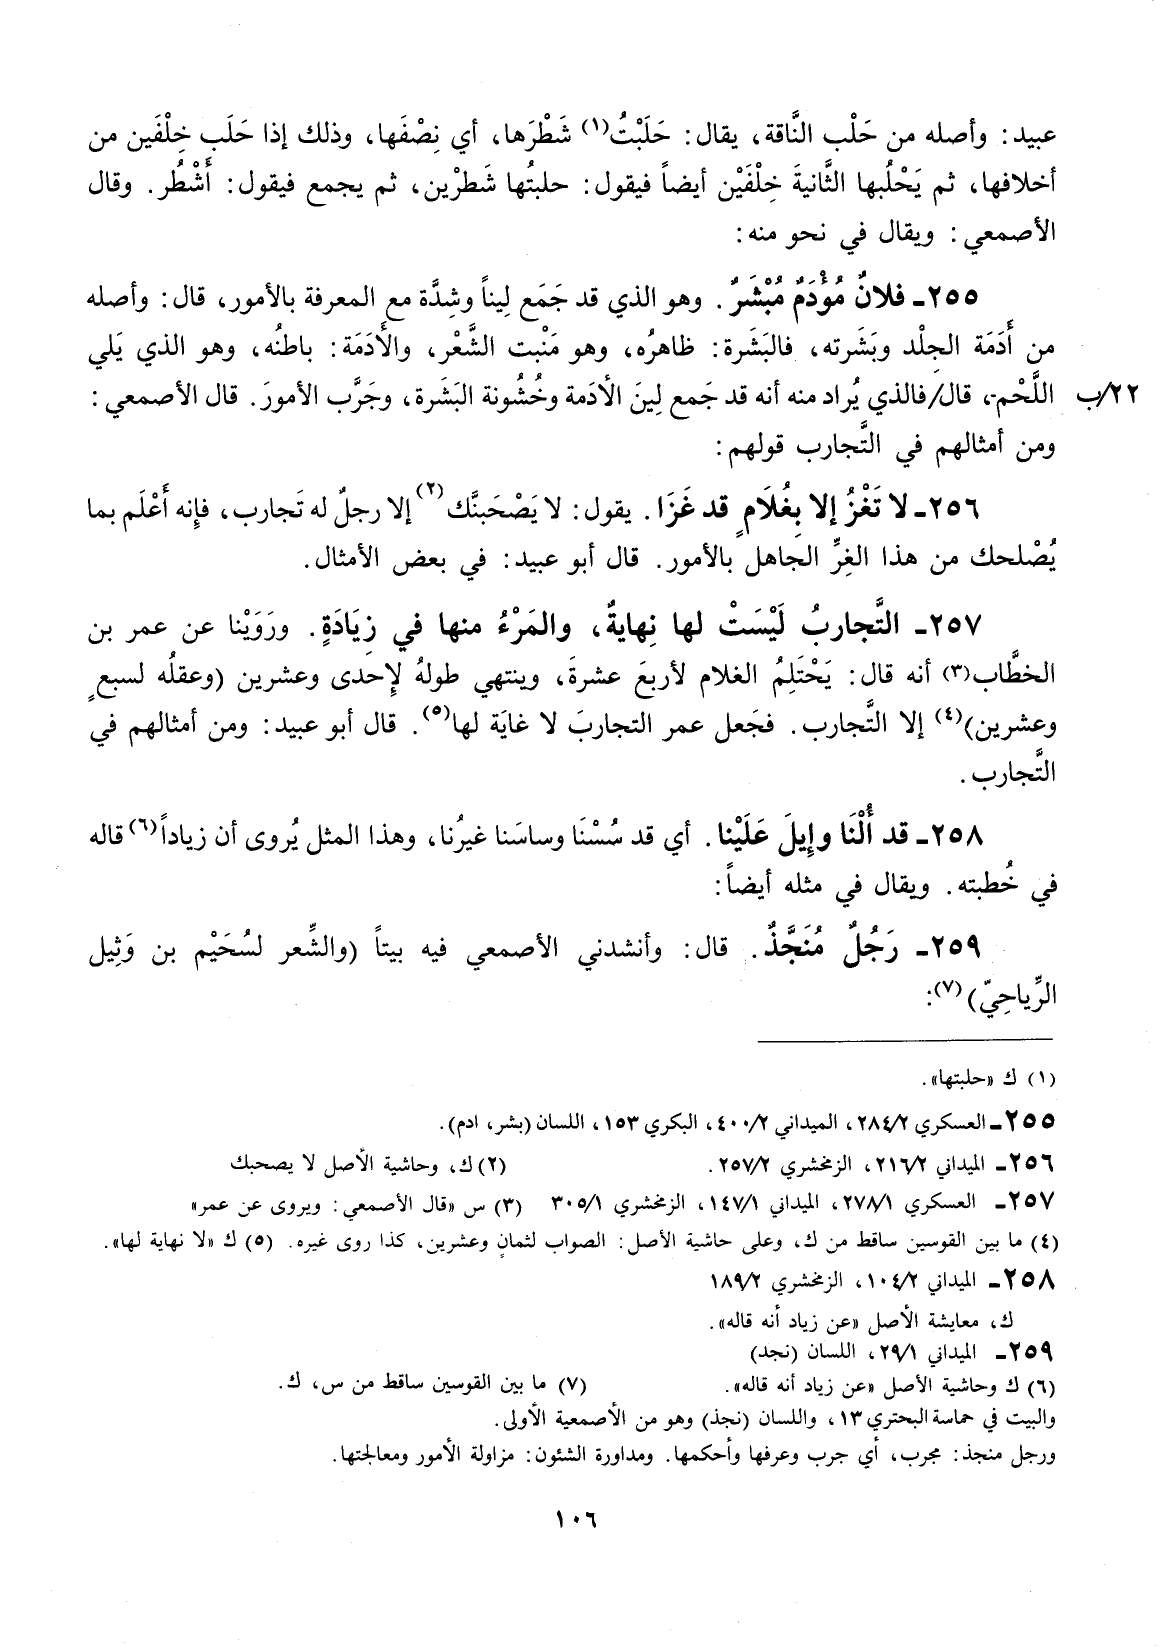 عبيد: وأصله من حَلْب النَّاقة، يقال: حَلَبْتُ(١) شَطْرَها، أي نِصْفَها، وذلك إذا حَلَب خِلْفَين من
أخلافها، ثم يَحْلُبها الثَّانيةَ خِلْفَيْن أيضاً فيقول: حلبتُها شَطرْين، ثم يجمع فيقول: أَشْطُر. وقال
الأصمعي: ويقال في نحو منه:
٢٥٥ـ فلانٌ مُؤْدَمٌ مُبْشَرٌ. وهو الذي قد جَمَع لِيناً وشِدَّة مع المعرفة بالأمور، قال: وأصله
من أَدَمَة الجِلْد وبَشَرته، فالبَشَرة: ظاهرُه، وهو مَنْبت الشَّعْر، والأَدَمَة: باطنُه، وهو الذي يَلي
اللَّحْم، قال/فالذي يُراد منه أنه قد جَمع لِينَ الأدَمة وخُشُونة البَشَرة، وجَرَّب الأمورَ. قال الأصمعي: ٢٢/ب
ومن أمثالهم في التَّجارب قولهم:
٢٥٦ـ لا تَغْزُ إلا بِغُلَامٍ قد غَزَا. يقول: لا يَصْحَبنَّك(٢) إلا رجلٌ له تَجارب، فإنه أَعْلَم بما
يُصْلحك من هذا الغِرِّ الجاهل بالأمور. قال أبو عبيد: في بعض الأمثال.
٢٥٧ـ التَّجاربُ لَيْسَتْ لها نِهايةٌ، والمَرْءُ منها في زِيَادَةٍ. ورَوَيْنا عن عمر بن
الخطَّاب(٣) أنه قال: يَحْتَلِمُ الغلام لأربعَ عشرةَ، وينتهي طولهُ لإحدى وعشرين (وعقلُه لسبعٍ
وعشرين)(٤) إلا التَّجارب. فجَعل عمر التجاربَ لا غايَة لها(٥). قال أبو عبيد: ومن أمثالهم في
التَّجارب.
٢٥٨ـ قد أُلْنَا وإيلَ عَلَيْنا. أي قد سُسْنَا وساسَنا غيرُنا، وهذا المثل يُروى أن زياداً(٦) قاله
في خُطبته. ويقال في مثله أيضاً:
٢٥٩ـ رَجُلٌ مُنَجَّذٌ. قال: وأنشدني الأصمعي فيه بيتاً (والشِّعر لسُحَيْم بن وَثِيل
الرِّياحِيّ)(٧):
(١) ك «حلبتها».
٢٥٥ـ العسكري ٢٨٤/٢، الميداني ٤٠٠/٢، البكري ١٥٣، اللسان (بشر، ادم).
٢٥٦ـ الميداني ٢١٦/٢، الزمخشري ٢٥٧/٢. (٢) ك، وحاشية الأصل لا يصحبك
٢٥٧ـ العسكري ٢٧٨/١، الميداني ١٤٧/١، الزمخشري ٣٠٥/١ (٣) س «قال الأصمعي: ويروى عن عمر»
(٤) ما بين القوسين ساقط من ك، وعلى حاشية الأصل: الصواب لثمانٍ وعشرين، كذا روى غيره. (٥) ك «لا نهاية لها».
٢٥٨ـ الميداني ١٠٤/٢، الزمخشري ١٨٩/٢
ك، معايشة الأصل «عن زياد أنه قاله».
٢٥٩ـ الميداني ٢٩/١، اللسان (نجد)
(٦) ك وحاشية الأصل «عن زياد أنه قاله». (٧) ما بين القوسين ساقط من س، ك.
والبيت في حماسة البحتري ١٣، واللسان (نجذ) وهو من الأصمعية الأولى.
ورجل منجذ: مجرب، أي جرب وعرفها وأحكمها. ومداورة الشئون: مزاولة الأمور ومعالجتها.
١٠٦